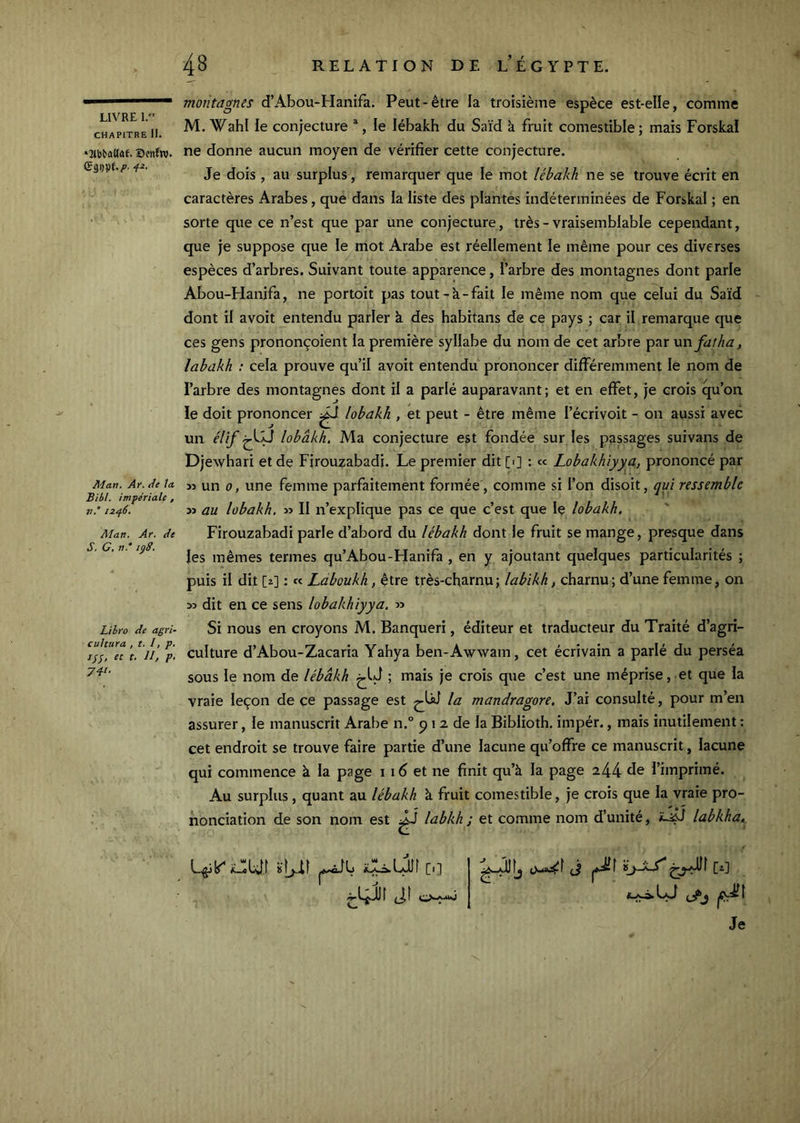 48 RELATION DE L'ÉGYPTE.
LIVRE I.er
CHAPITRE II.
*Abdallat. Denkw.
Egypt. p. 42.
montagnes d'Abou-Hanifa. Peut-être la troisième espèce est-elle, comme
M. Wahl le conjecture ª, le lébakh du Saïd à fruit comestible; mais Forskal
ne donne aucun moyen de vérifier cette conjecture.
Je dois, au surplus, remarquer que le mot lébakh ne se trouve écrit en
caractères Arabes, que dans la liste des plantes indéterminées de Forskal; en
sorte que ce n'est que par une conjecture, très-vraisemblable cependant,
que je suppose que le mot Arabe est réellement le même pour ces diverses
espèces d'arbres. Suivant toute apparence, l'arbre des montagnes dont parle
Abou-Hanifa, ne portoit pas tout-à-fait le même nom que celui du Saïd
dont il avoit entendu parler à des habitans de ce pays; car il remarque que
ces gens prononçoient la première syllabe du nom de cet arbre par un fatha,
labakh : cela prouve qu'il avoit entendu prononcer différemment le nom de
l'arbre des montagnes dont il a parlé auparavant; et en effet, je crois qu'on
le doit prononcer لُبَخ lobakh, et peut-être même l'écrivoit-on aussi avec
un élif لُبَاخ lobâkh. Ma conjecture est fondée sur les passages suivans de
Djewhari et de Firouzabadi. Le premier dit [1] : « Lobakhiyya, prononcé par
Man. Ar. de la
Bibl. impériale,
n.° 1246.
» un o, une femme parfaitement formée, comme si l'on disoit, qui ressemble
» au lobakh. » Il n'explique pas ce que c'est que le lobakh.
Man. Ar. de
S. G. n.° 198.
Firouzabadi parle d'abord du lébakh dont le fruit se mange, presque dans
les mêmes termes qu'Abou-Hanifa, en y ajoutant quelques particularités;
puis il dit [2] : « Laboukh, être très-charnu; labikh, charnu; d'une femme, on
» dit en ce sens lobakhiyya. »
Libro de agri-
cultura, t. I, p.
155, et t. II, p.
741.
Si nous en croyons M. Banqueri, éditeur et traducteur du Traité d'agri-
culture d'Abou-Zacaria Yahya ben-Awwam, cet écrivain a parlé du perséa
sous le nom de lébâkh لباخ ; mais je crois que c'est une méprise, et que la
vraie leçon de ce passage est لفاح la mandragore. J'ai consulté, pour m'en
assurer, le manuscrit Arabe n.° 912 de la Biblioth. impér., mais inutilement :
cet endroit se trouve faire partie d'une lacune qu'offre ce manuscrit, lacune
qui commence à la page 116 et ne finit qu'à la page 244 de l'imprimé.
Au surplus, quant au lébakh à fruit comestible, je crois que la vraie pro-
nonciation de son nom est لَبَخ labkh; et comme nom d'unité, لَبَخَة labkha.
[1] اللباخية بالضم المرأة التامة كانها
نسبت الى اللباخ
[2] اللبوخ كثرة اللحم في الجسد واللبيخ
اللحيم وهي لباخية
Je